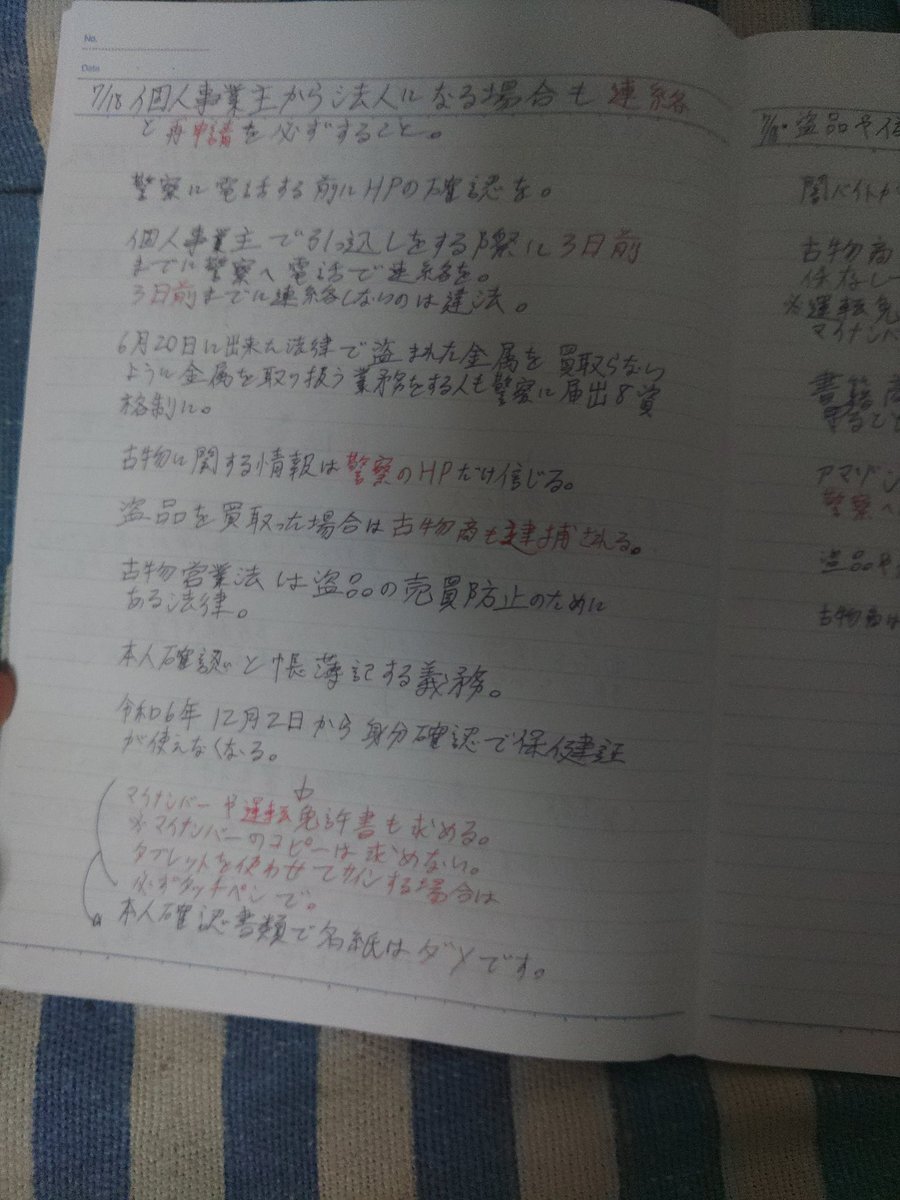 No.
Date
7/18 個人事業主から法人になる場合も 連絡
と再申請を必ずすること。
警察に電話する前にHPの確認を。
個人事業主で引っ越しをする際に3日前
までに警察へ電話で連絡を。
3日前までに連絡しないのは違法。
6月20日に出来た法律で盗まれた金属を買取らない
ように金属を取り扱う業務をする人も警察に届出
格制に。
古物に関する情報は警察のHPだけ信じる。
盗品を買取った場合は古物商も逮捕される。
古物営業法は盗品の売買防止のために
ある法律。
本人確認と帳簿記する義務。
令和6年12月2日から身分確認で保健証
が使えなくなる。
マイナンバーや運転免許書も求める。
※マイナンバーのコピーは求めない。
タブレットを使わせてサインする場合は
必ずタッチペンで。
本人確認書類で名紙はダメです。
盗品や
闇バイトか
古物商
保存し
※運転免
マイナンバ
書籍
アマゾン
警察へ
盗品や
古物商は